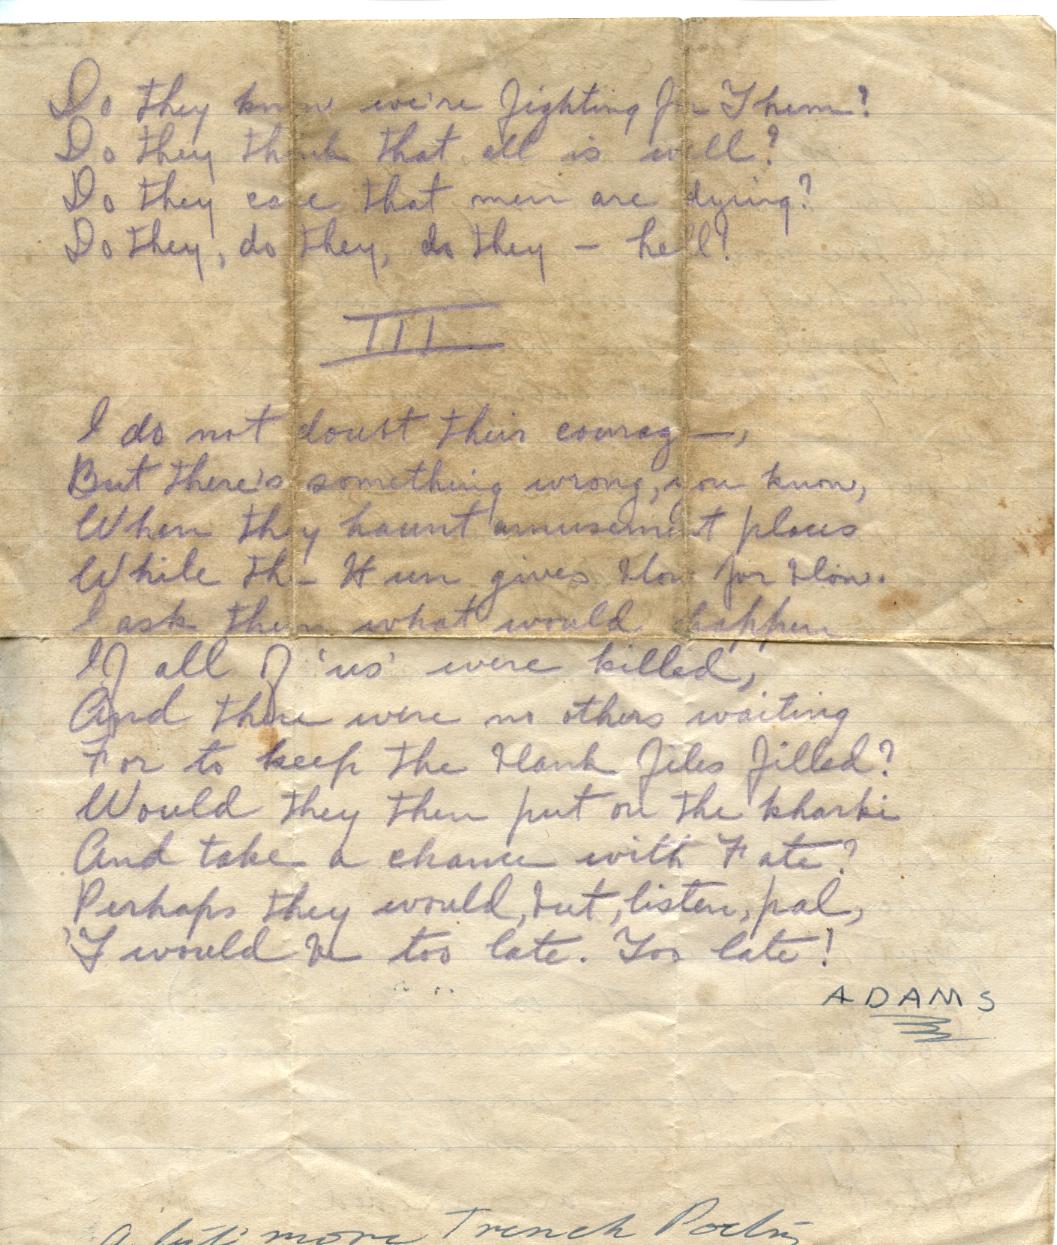 Do they know we're fighting for Them?
Do they think that all is well?
Do they care that men are dying?
Do they, do they, do they – hell?
III
I do not doubt their courag—,
But there's something wrong, you know,
When they haunt amusement places
While th– Hun gives blow for blow.
I ask them what would happen
If all of 'us' were killed,
And there were no others waiting
For to keep the blank files filled?
Would they then put on the kharki
And take a chance with Fate?
Perhaps they would, but, listen, pal,
'T would be too late. Too late!
ADAMS
A bit more Trench Poetry